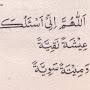 اَللّٰهُمَّ اِنِّىْ اَسْئَلُكَ
عِيْشَةً نَقِيَّةً
وَمِيْتَةً سَوِيَّةً